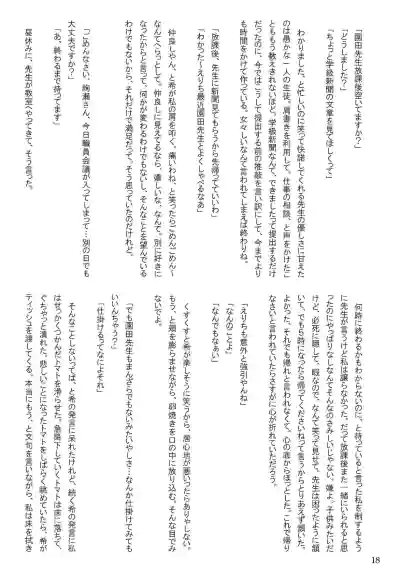 「園田先生放課後空いてますか?」
「どうしました?」
「ちょっと学級新聞の文章を見てほしくって」
わかりました、と忙しいのに笑って快諾してくれる先生の優しさに甘えた
のは愚かな一人の生徒。肩書きを利用して、仕事の相談、と声をかけたこ
ともう数えきれないほど。学級新聞なんて、できましたって提出するだけ
だったのに、今ではこうして提出する前の推敲を言い訳にして、今までより
も時間をかけて作っている。女々しいなんて言われてしまえば終わりね。
「放課後、先生に新聞見てもらうから先帰ってていいわ」
「わかったーえりち最近園田先生とよくしゃべるなあ」
仲良しやん、と希が私の肩を叩く。痛いわね、と笑ったらごめんごめん〜
なんてへらっとして。仲良しに見えてるなら、嬉しいな、なんて。別に好きに
なってったからと言って、何かが変わるわけでもないし、そんなことを望んでいる
わけでもないから、それだけで満足だって。そう思っていたのだけれど。
「ごめんなさい、絢瀬さん、今日職員会議が入ってしまって…別の日でも
大丈夫ですか?」
「あ、終わるまで待ってます」
昼休みに、先生が教室へやってきて、そう言った。
何時に終わるかもわからないのに、と待っていると言った私を制するよう
に先生が言うけど私は譲らなかった。だって放課後また一緒にいられると思
ったのにやっぱりなしなんてそんなのさみしいじゃない。嫌よ。子供みたいだ
けど、必死に隠して、暇なので、なんて笑って見せて。先生は困ったように頷
いて、でも5時になったら帰ってくださいねって言うからとりあえず頷いた。
よかった。それでも帰れと言われなくて。心の底からほっとした。これで帰り
なさいと言われていたらさすがに心が折れていただろう。
「えりちも意外と強引やんね」
「なんのことよ」
「なんでもなぁい」
くすくすと希が楽しそうに笑うから、居心地が悪いったらありゃしない。
もう、と頬を膨らませながら、卵焼きを口の中に放り込む。そんな目でみ
ないでよ。
「でも園田先生もまんざらでもないみたいやしさ…なんか仕掛けてみても
いいんちゃう?」
「仕掛けるってなによそれ」
そんなことしないってば、と希の発言に呆れたけれど、続く希の発言に私
はせっかくつかんだトマトを滑らせた。急降下していくトマトは床に落ちて、
ぐちゃっと潰れた。悲しいことになったトマトをしばらく眺めていたら、希が
ティッシュを渡してくる。本当にもう、と文句を言いながら、私は床を拭き
18